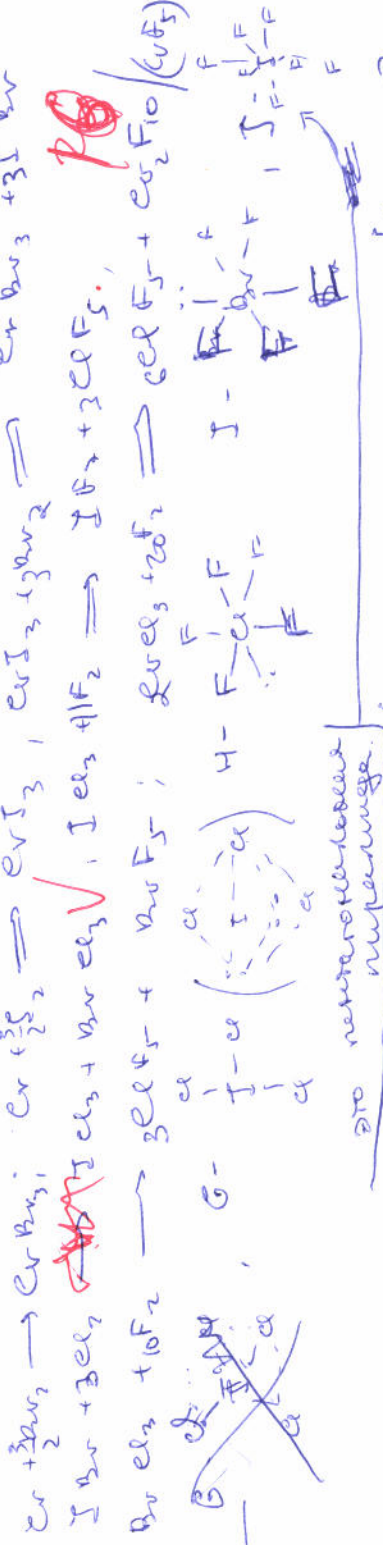 Cr + 3/2 Br₂ → CrBr₃; Cr + 3/2 I₂ = CrI₃, CrI₃ + 3Br₂ = CrBr₃ + 3IBr
IBr + 3Cl₂ → ICl₃ + BrCl₃, ICl₃ + 11F₂ = IF₇ + 3ClF₅.
BrCl₃ + 10F₂ → 3ClF₅ + BrF₅; 2CrCl₃ + 20F₂ = 6ClF₅ + Cr₂F₁₀ / (CrF₅)
G Cl I Cl Cl , G - Cl I - Cl Cl ( Cl Cl I Cl Cl ) H - F F Cl F F F I - F Br F F F , J - F F F I F F F F
это пентагональная
пирамида.